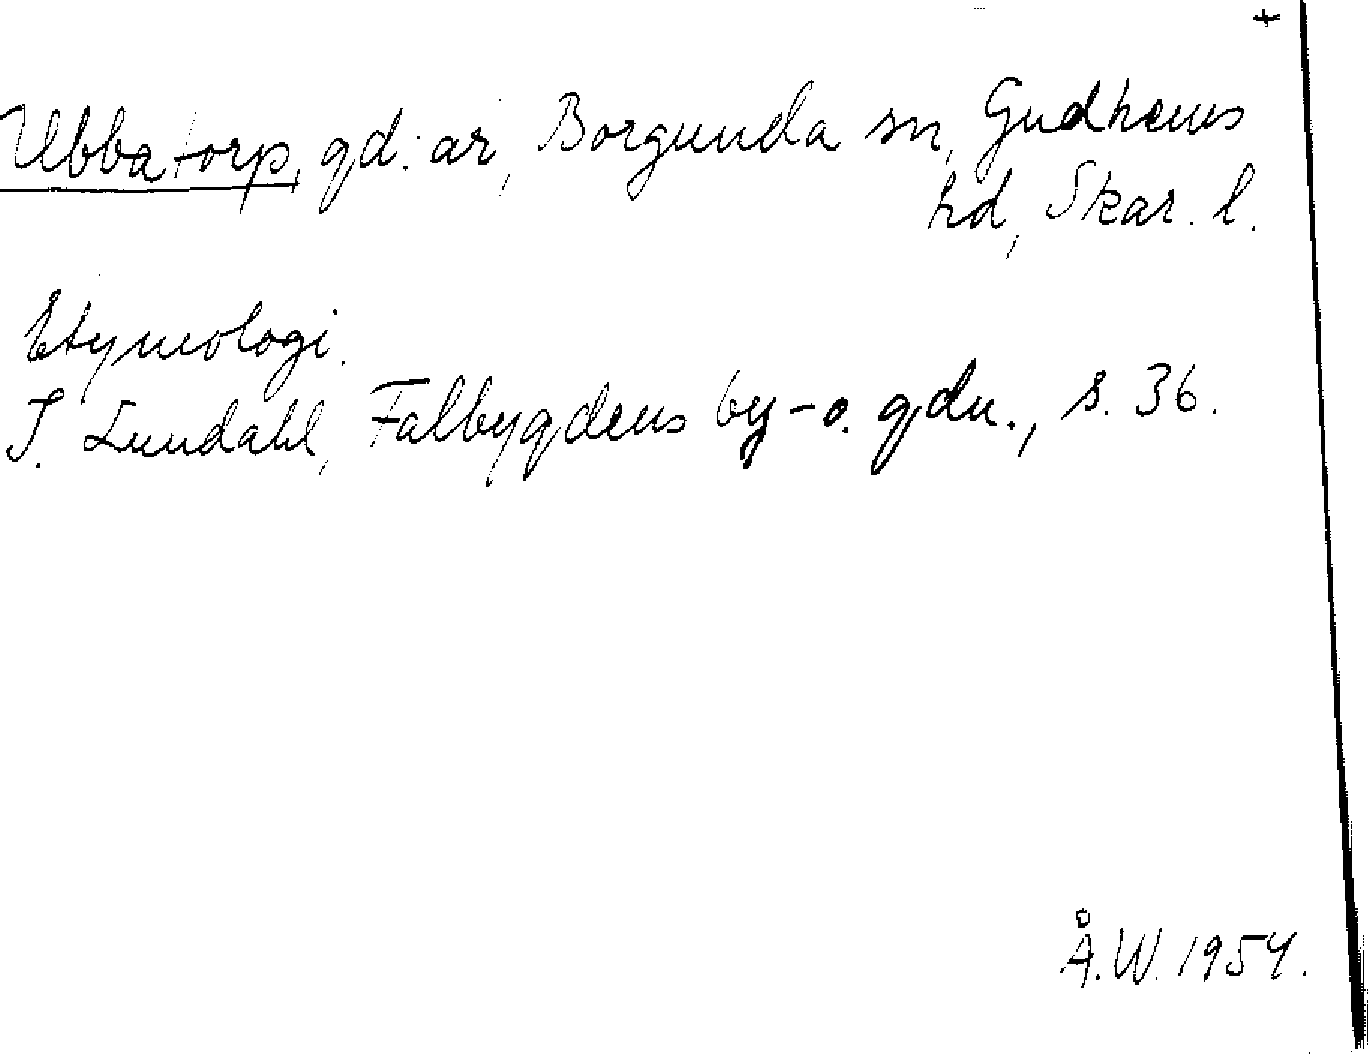 +
Ubbatorp, gd:ar, Borgunda sn, Gudhems
hd, Skar. l.
Etymologi.
I. Lundahl, Falbygdens by- o. gdn., s. 36.
Å.W. 1954.